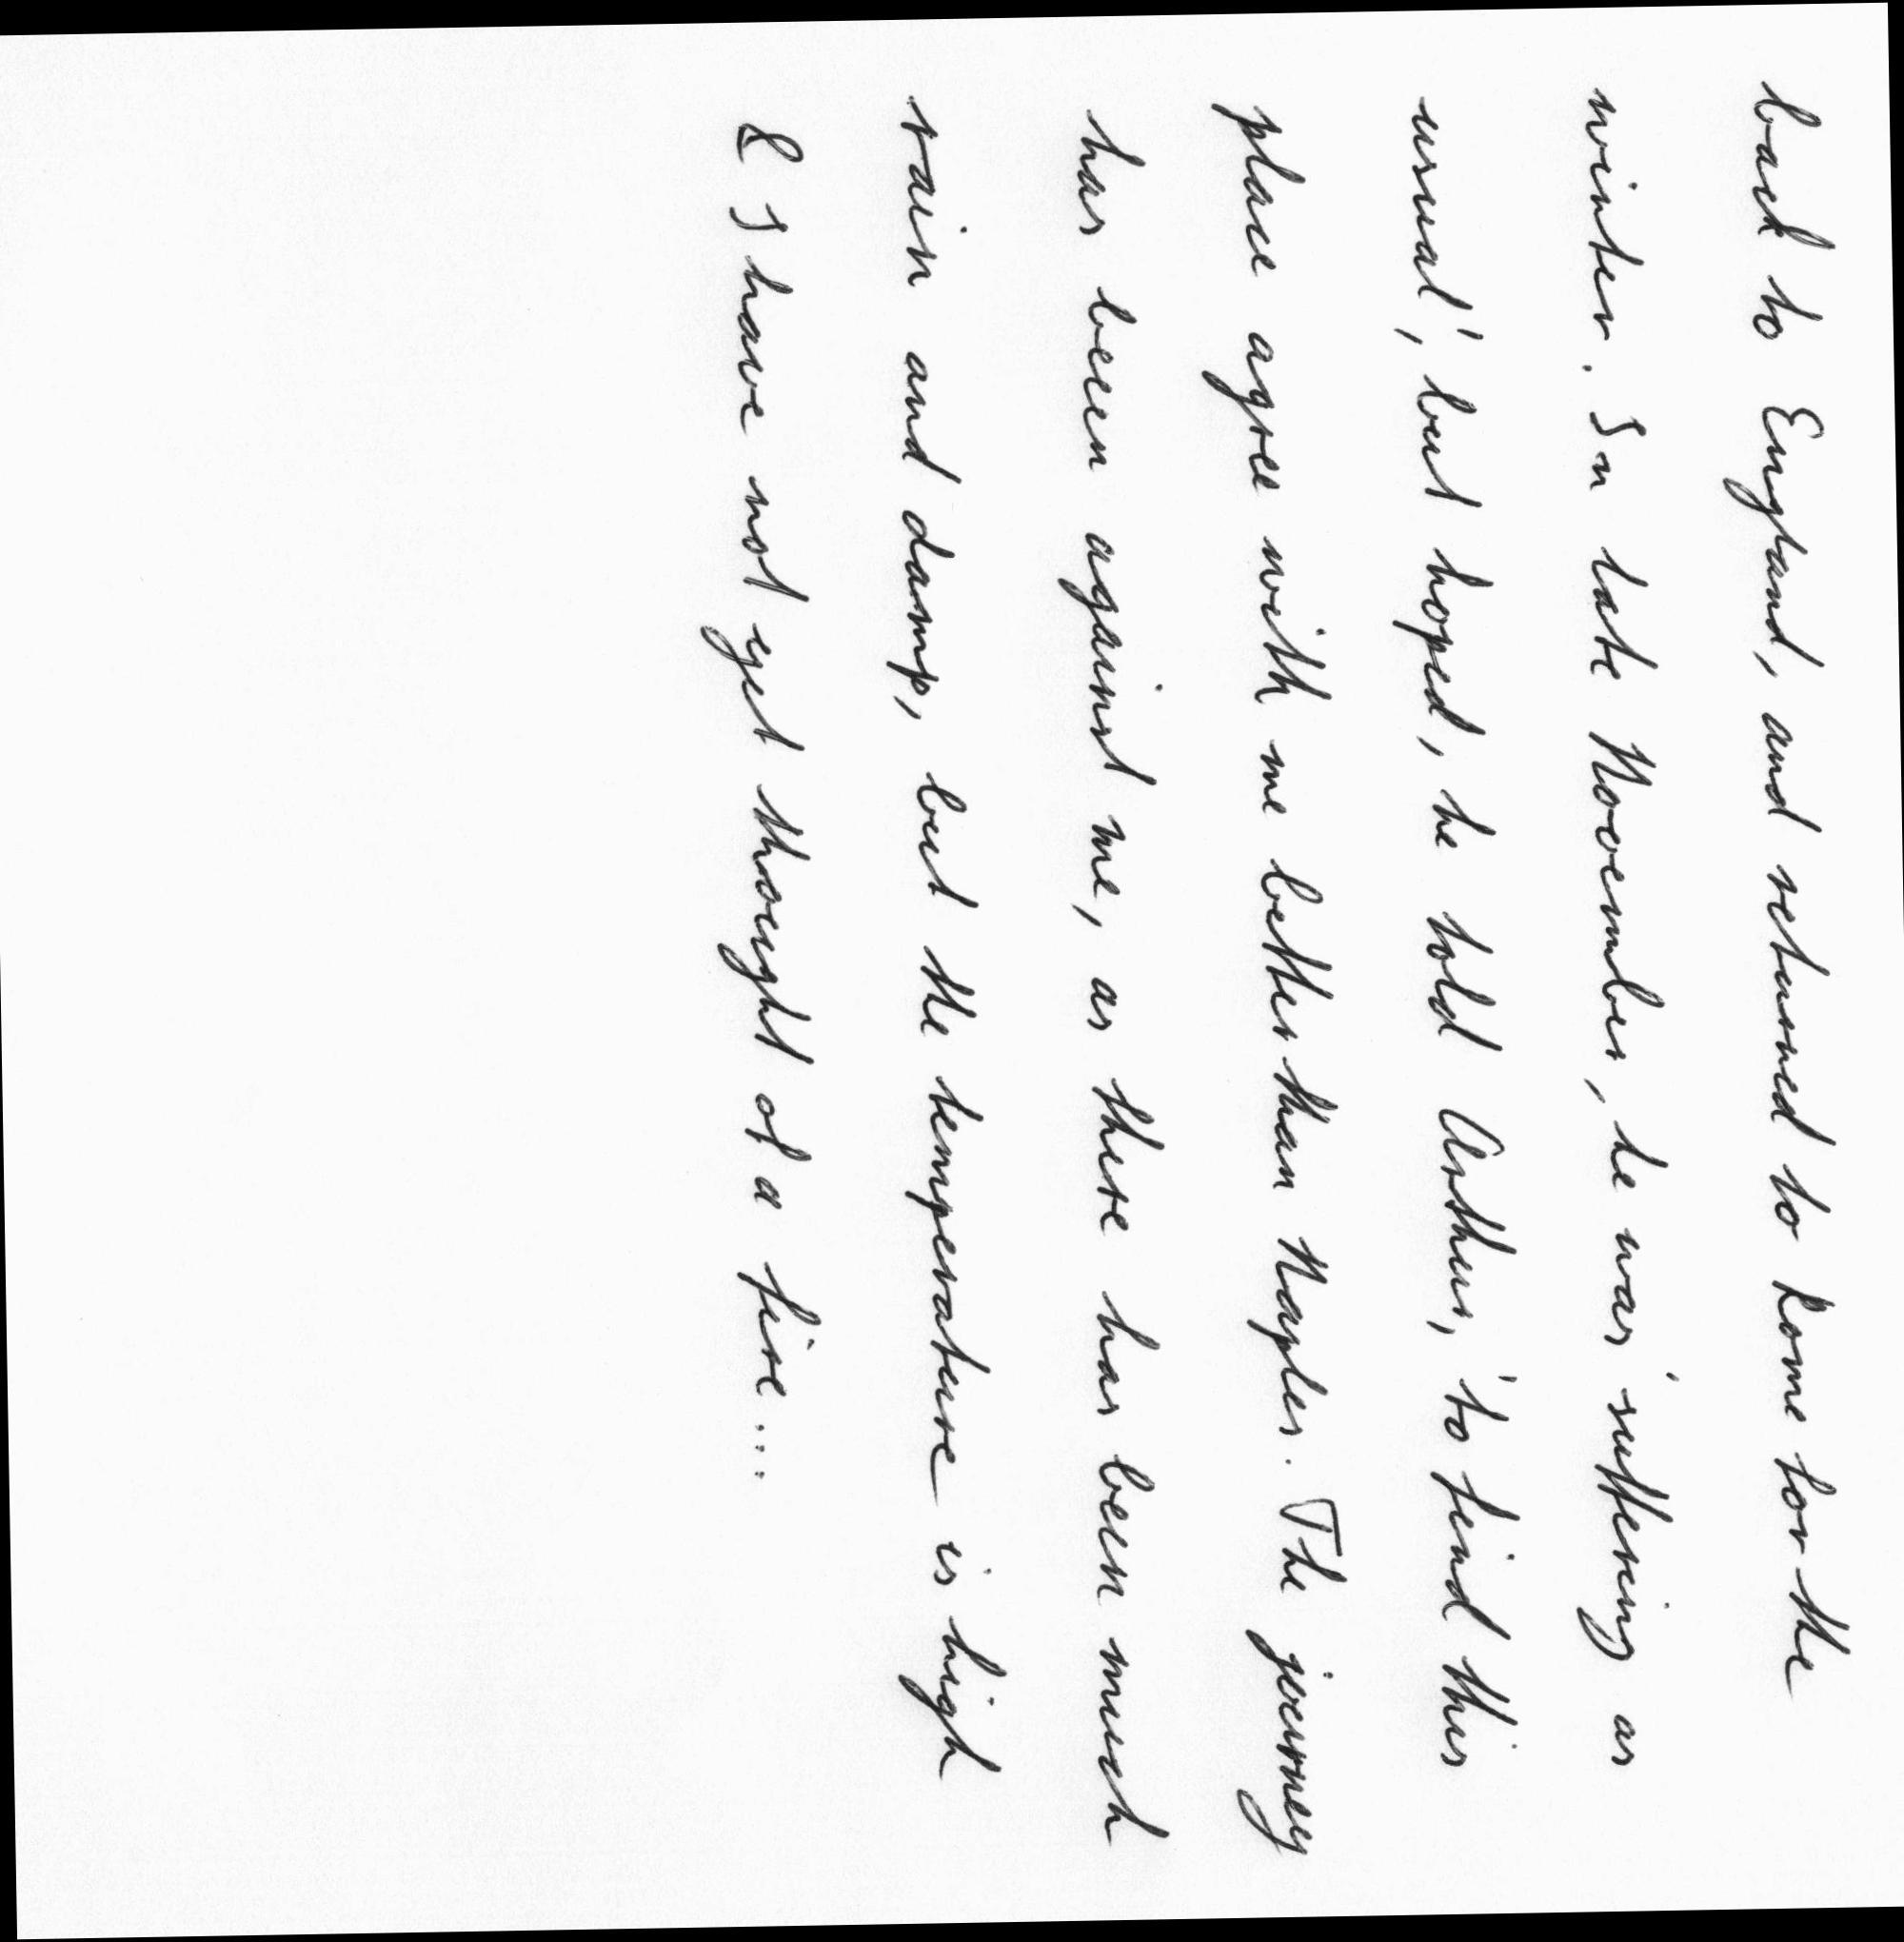 back to England, and returned to Rome for the
winter. In late November, he was 'suffering as
usual', but hoped, he told Arthur, 'to find this
place agree with me better than Naples. The journey
has been against me, as there has been much
rain and damp, but the temperature is high
& I have not yet thought of a fire....